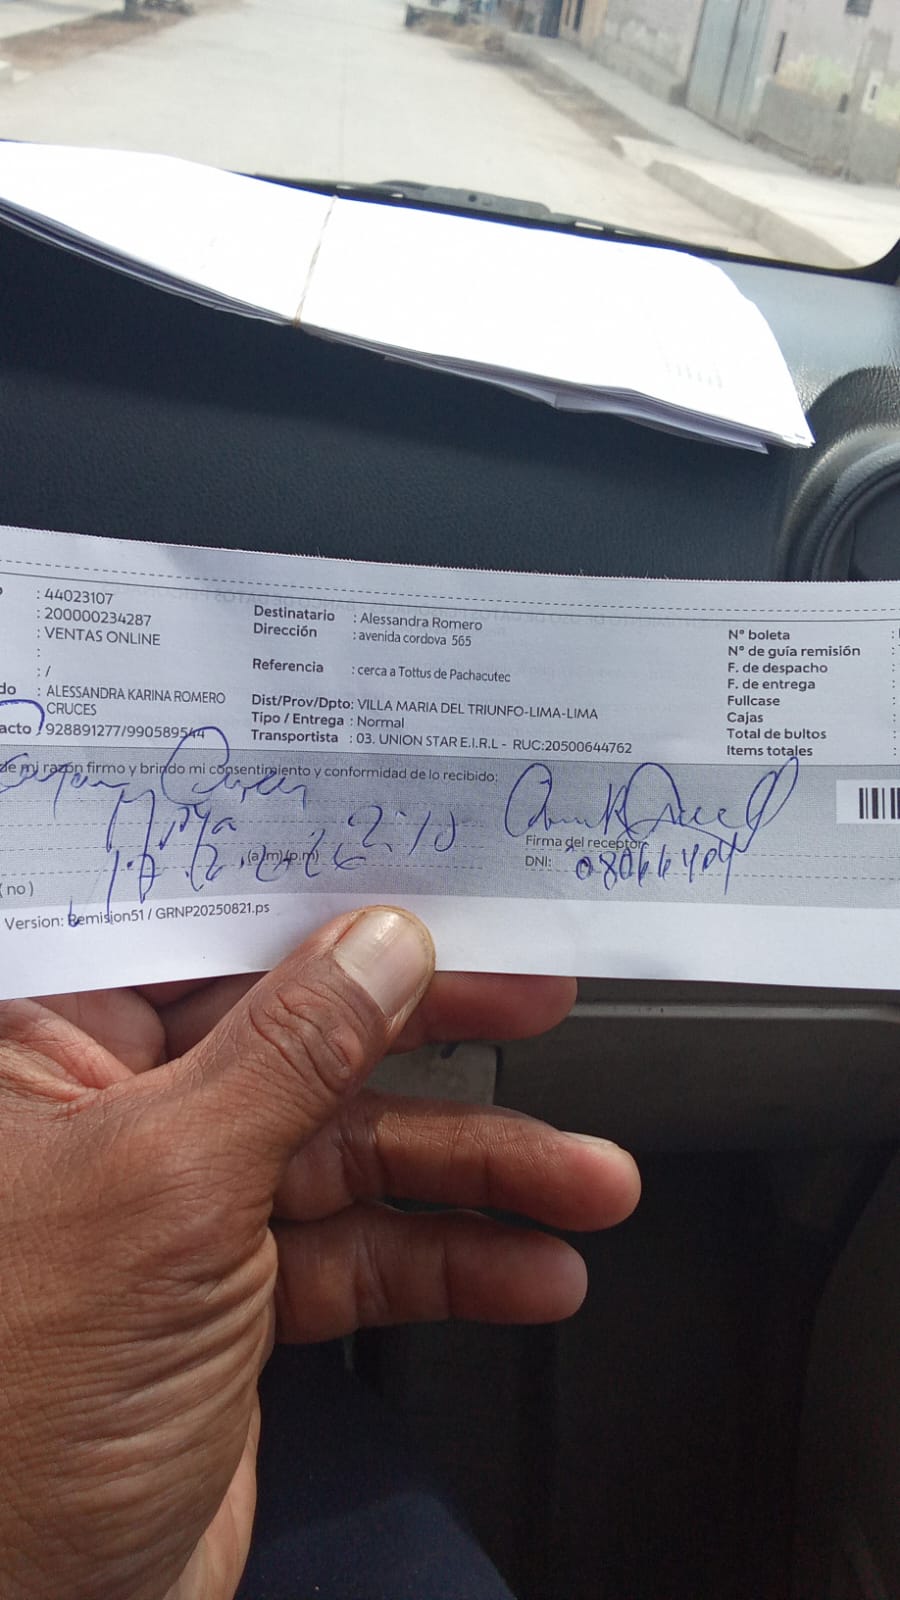 : 44023107
: 200000234287
: VENTAS ONLINE
:
: /
do : ALESSANDRA KARINA ROMERO
CRUCES
acto : 928891277/990589544
Destinatario : Alessandra Romero
Dirección : avenida cordova 565
Referencia : cerca a Tottus de Pachacutec
Dist/Prov/Dpto: VILLA MARIA DEL TRIUNFO-LIMA-LIMA
Tipo / Entrega : Normal
Transportista : 03. UNION STAR E.I.R.L - RUC:20500644762
N° boleta :
N° de guía remisión :
F. de despacho :
F. de entrega :
Fullcase :
Cajas :
Total de bultos :
Items totales :
de mi razón firmo y brindo mi consentimiento y conformidad de lo recibido:
2:10
(a.m)(p.m)
Firma del receptor
DNI: 08066404
( no )
Version: Remision51 / GRNP20250821.ps